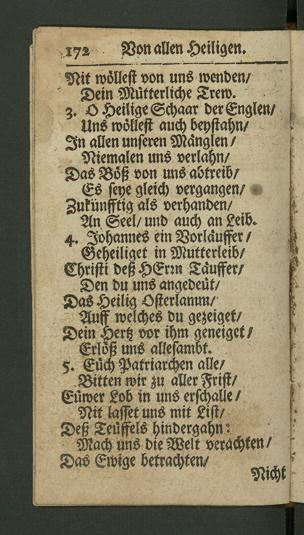 172 Von allen Heiligen.
Nit wöllest von uns wenden/
Dein Mütterliche Trew.
3. O Heilige Schaar der Englen/
Uns wöllest auch beystahn/
In allen unseren Mänglen/
Niemalen uns verlahn/
Das Böß von uns abtreib/
Es seye gleich vergangen/
Zukünfftig als verhanden/
An Seel/ und auch an Leib.
4. Johannes ein Vorläuffer/
Geheiliget in Mutterleib/
Christi deß HErrn Täuffer/
Den du uns angedeüt/
Das Heilig Osterlamm/
Auff welches du gezeiget/
Dein Hertz vor ihm geneiget/
Erlöß uns allesambt.
5. Eüch Patriarchen alle/
Bitten wir zu aller Frist/
Eüwer Lob in uns erschalle/
Nit lasset uns mit List/
Deß Teüffels hindergahn:
Mach uns die Welt verachten/
Das Ewige betrachten/
Nicht